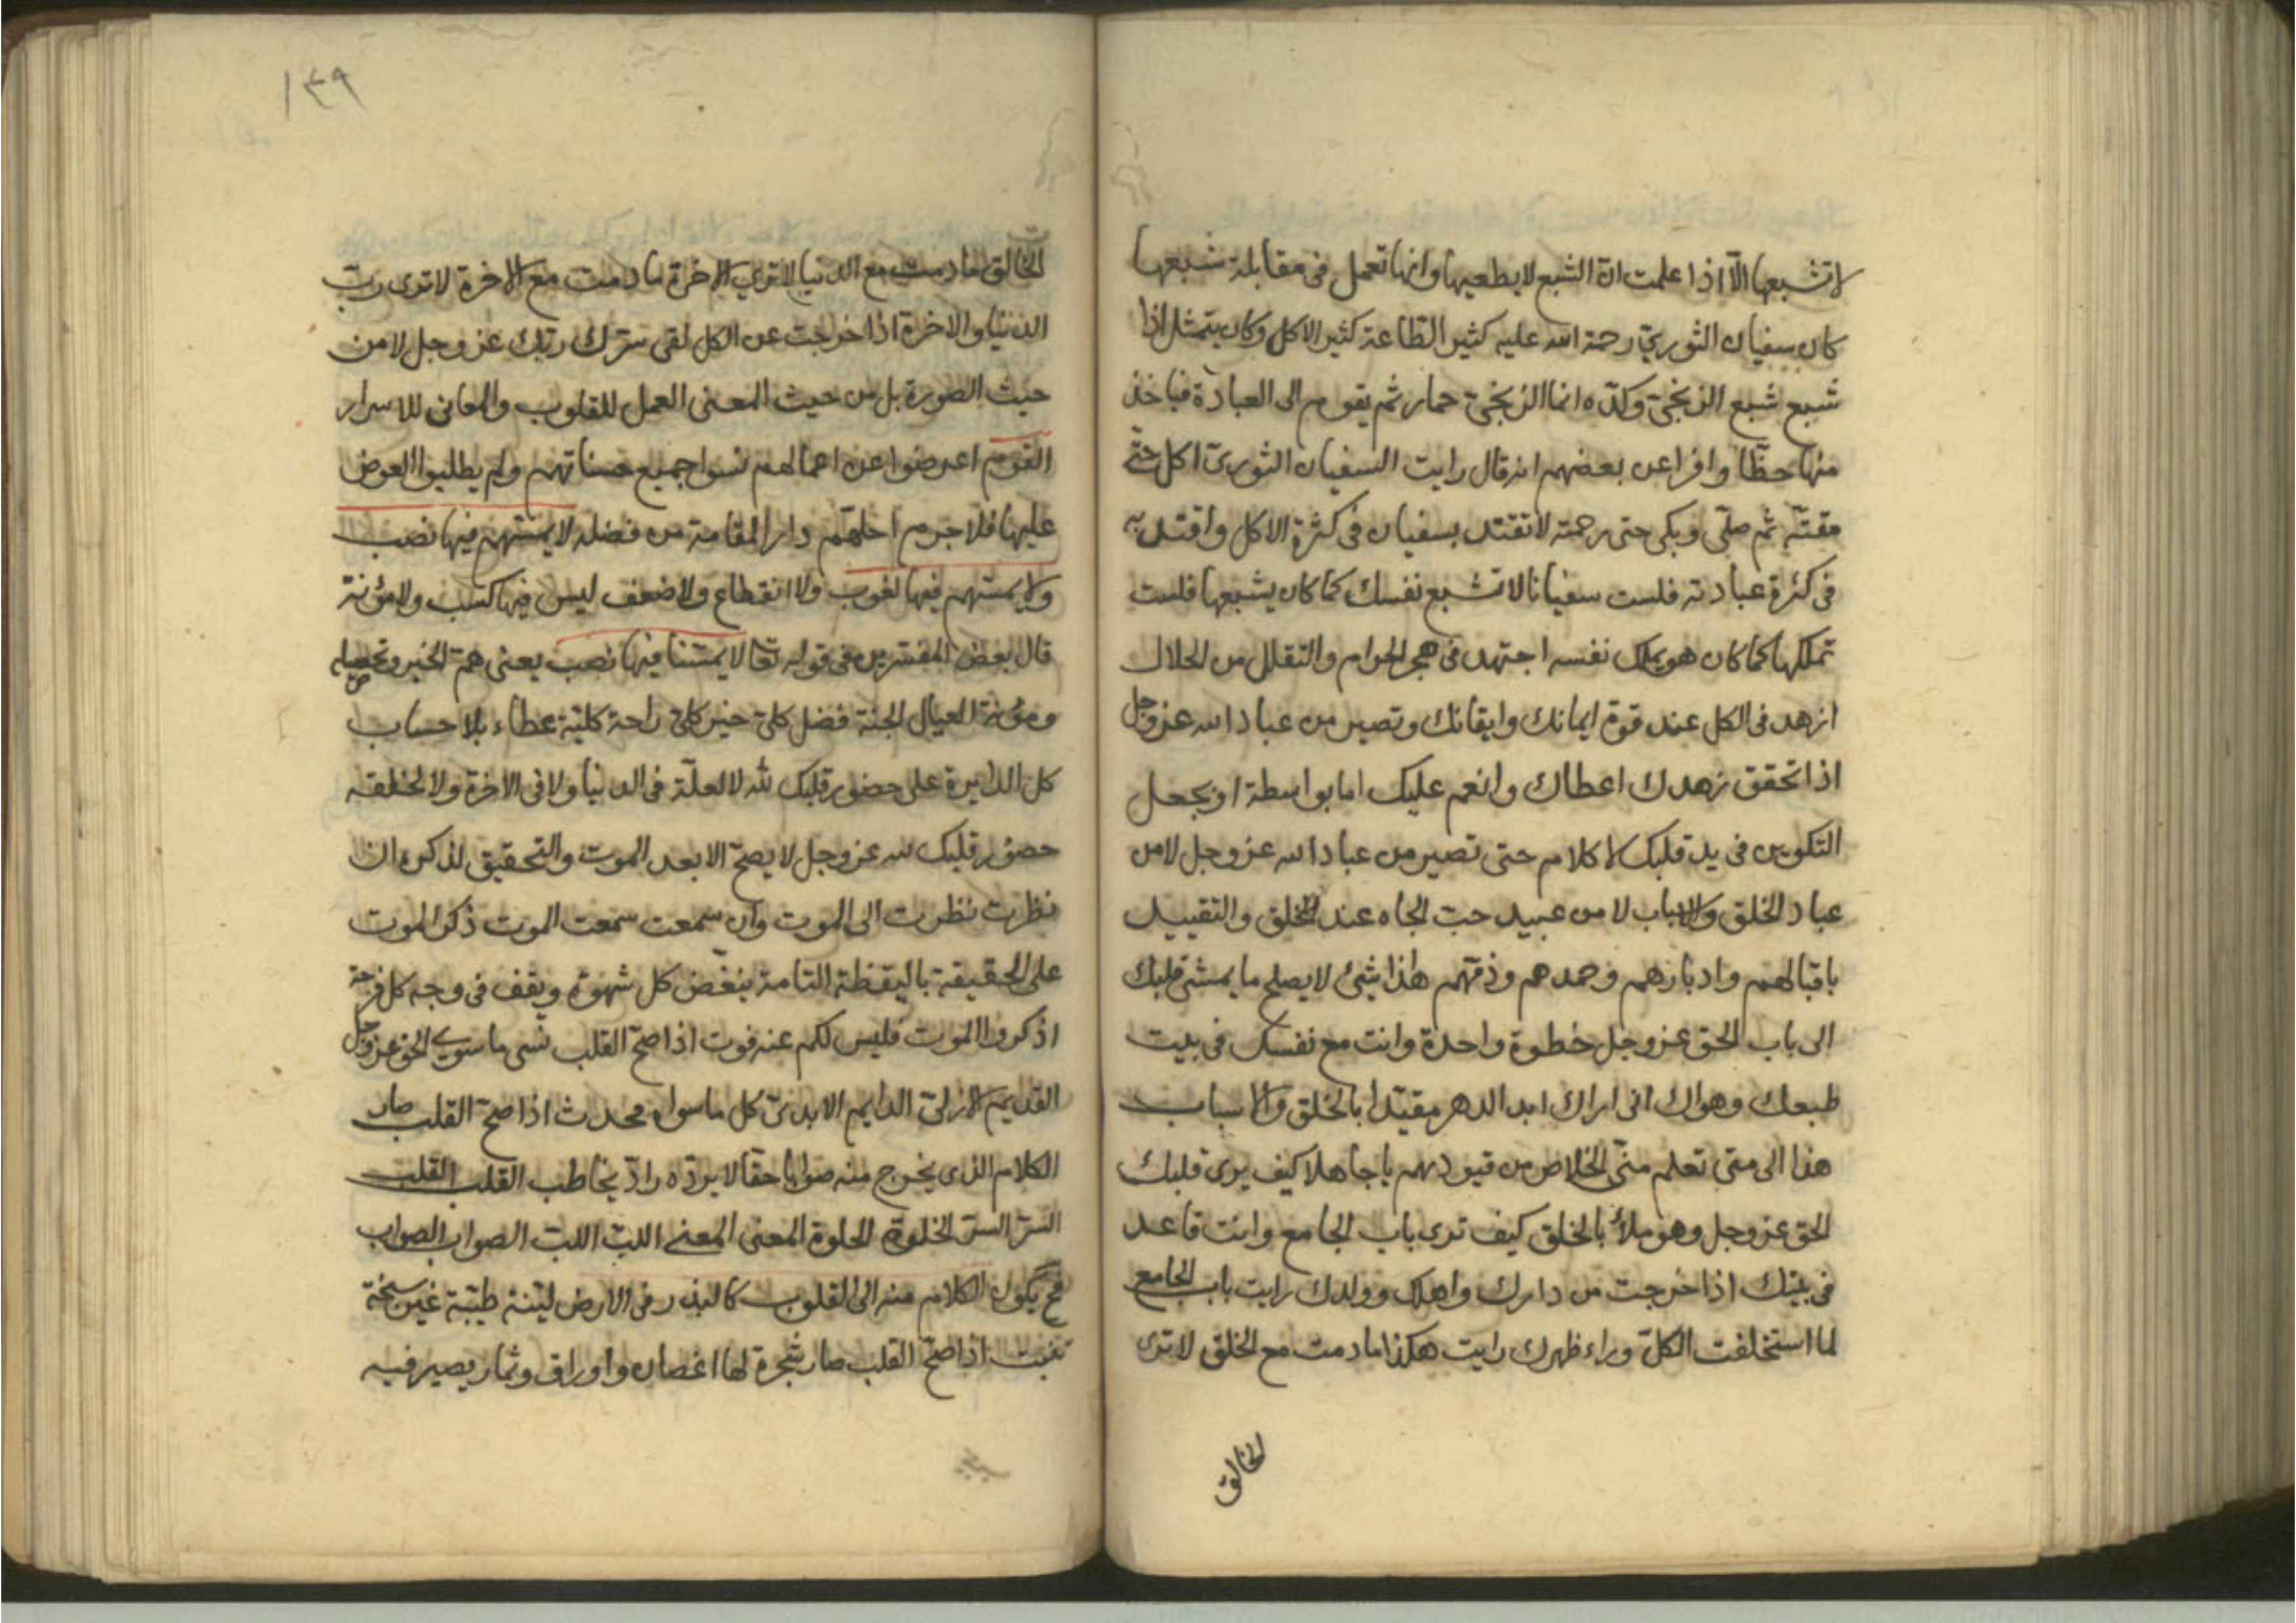 لا تشبعها الّا اذا علمت انّ الشبع لا يطغيها وانها تعمل فى مقابلة شبعها
كان سفيان الثورىّ رحمة الله عليه كثير الطاعة كثير الاكل وكان يتمثل اذا
شبع شبع الزنجىّ وكدّه انما الزنجىّ حمار ثم يقوم الى العبادة فياخذ
منها حظّا وافرا عن بعضهم انه قال رايت السفيان الثورىّ اكل حتّى
مقتّه ثم صلّى وبكى حتى رحمته لا تقتد بسفيان فى كثرة الاكل واقتد به
فى كثرة عبادته فلست سفيانا لا تشبع نفسك كما كان يشبعها فلست
تملكها كما كان هو يملك نفسه اجتهد فى هجر الحرام والتقلل من الحلال
ازهد فى الكل عند قوة ايمانك وايقانك وتصير من عباد الله عز وجل
اذا تحقق زهدك اعطاك وانعم عليك اما بواسطة او يجعل
التكوين فى يد قلبك لا كلام حتى تصير من عباد الله عز وجل لا من
عباد الخلق والاسباب لا من عبيد حبّ الجاه عند الخلق والتقييد
باقبالهم وادبارهم وحمدهم وذمّهم هذا شئ لا يصلح ما يمشى قلبك
الى باب الحق عز وجل خطوة واحدة وانت مع نفسك فى بيت
طبعك وهواك انى اراك ابد الدهر مقيّدا بالخلق والاسباب
هذا الى متى تعلم منّى الخلاص من قيودهم يا جاهلا كيف يرى قلبك
الحق عز وجل وهو ملأ بالخلق كيف ترى باب الجامع وانت قاعد
فى بيتك اذا خرجت من دارك واهلك وولدك رايت باب الجامع
لما استخلفت الكلّ وراء ظهرك رايت هكذا ما دمت مع الخلق لا ترى
الخالق
١٣٩
الخالق ما دمت مع الدنيا لا ترى الاخرة ما دمت مع الاخرة لا ترى ربّ
الدنيا والاخرة اذا خرجت عن الكل لقى سرّك ربّك عز وجل لا من
حيث الصورة بل من حيث المعنى العمل للقلوب والمعانى للاسرار
القوم اعرضوا عن اعمالهم نسوا جميع حسناتهم ولم يطلبوا العوض
عليها فلا جرم احلّهم دار المقامة من فضله لا يمسّهم فيها نصب
ولا يمسّهم فيها لغوب ولا انقطاع ولا ضعف ليس فيها كسب ولا مؤنة
قال بعض المفسّرين فى قوله تعا لا يمسّنا فيها نصب يعنى همّ الخبز وتحصيله
ومؤنة العيال الجنة فضل كلىّ خير كلىّ راحة كليّة عطاء بلا حساب
كل الدايرة على حضور قلبك لله لا لعلّة فى الدنيا ولا فى الاخرة ولا لخلقه
حضور قلبك لله عز وجل لا يصحّ الا بعد الموت والتحقيق لذكره ان
نظرت نظرت الى الموت وان سمعت سمعت الموت ذكر الموت
على الحقيقة باليقظة التامة ينغّض كل شهوة ويقف فى وجه كل فرحة
اذكروا الموت فليس لكم عنه فوت اذا صحّ القلب نسى ما سوى الحق عز وجل
القديم الازلىّ الدايم الابدىّ كل ما سواه محدث اذا صحّ القلب صار
الكلام الذى يخرج منه صوابا حقّا لا يردّه رادّ يخاطب القلب القلب
السرّ السرّ الخلوة الخلوة المعنى المعنى اللبّ اللبّ الصواب الصواب
فح يكون الكلام منه الى القلوب كالبذر فى الارض ليّنة طيّبة غير سبخة
تنبت اذا صحّ القلب صار شجرة لها اغصان واوراق وثمار يصير فيه